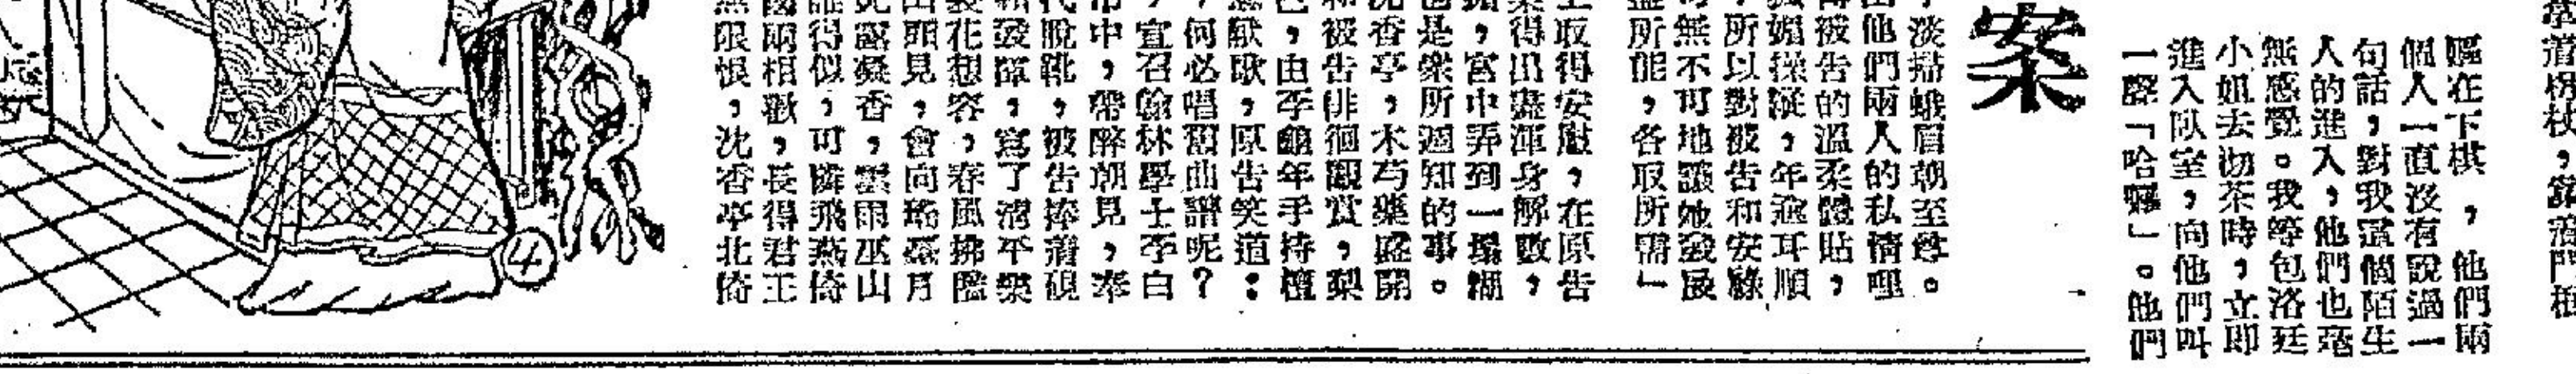 嫗在下棋，他們兩
個人一直沒有說過一
句話，對我這個陌生
人的進入，他們也毫
無感覺。我等包洛廷
小姐去沏茶時，立即
進入臥室，向他們叫
一聲「哈囉」。他們
案
淡掃蛾眉朝至尊。
他們兩人的私情哩
被告的溫柔體貼，
操縱，年逾耳順
所以對被告和安祿
無不可地讓她發展
所能，各取所需」
取得安慰，在原告
得出盡渾身解數，
，宮中弄到一塌糊
是衆所週知的事。
香亭，木芍藥盛開
被告徘徊觀賞，梨
，由李龜年手持檀
獻歌，原告笑道：
何必唱舊曲譜呢？
宣召翰林學士李白
中，帶醉朝見，奉
脫靴，被告捧着硯
，寫了清平樂
花想容，春風拂檻
頭見，會向瑤臺月
露凝香，雲雨巫山
得似，可憐飛燕倚
兩相歡，長得君王
限恨，沈香亭北倚
4